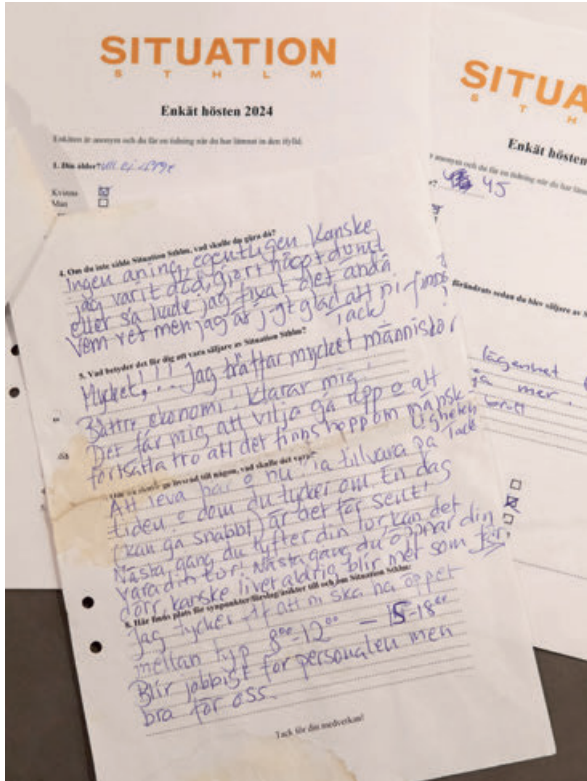 SITUATION
STHLM
Enkät hösten 2024
Enkäten är anonym och du får en tidning när du har lämnat in den ifylld.
1. Din ålder? vill ej uppge
Kvinna
Man
4. Om du inte sålde Situation Sthlm, vad skulle du göra då?
Ingen aning egentligen Kanske
jag varit död, gjort något dumt
eller så hade jag fixat det ändå
Vem vet men jag är j-gt glad att ni finns
Tack
5. Vad betyder det för dig att vara säljare av Situation Sthlm?
Mycket!!! Jag träffar mycket människor
Bättre ekonomi! klarar mig!
Det får mig att vilja gå upp o att
fortsätta tro att det finns hopp om mänsk
ligheten
Tack
att leva här o nu. Ta tillvara på
tiden o dom du tycker om En dag
(kan gå snabbt) är det för sent!
Nästa gång du lyfter din lur kan det
vara din tur! Nästa gång du öppnar din
dörr, kanske livet aldrig blir mer som förr
8. Här finns plats för synpunkter/förslag/åsikter till och om Situation Sthlm:
Jag tycker att ni ska ha öppet
mellan typ 8⁰⁰-12⁰⁰ – 15-18⁰⁰
Blir jobbigt för personalen men
bra för oss.
Tack för din medverkan!
SITUA
ST
Enkät hösten
anonym och du får en tidning
45
förändrats sedan du blev säljare av
lägenhet
mer.